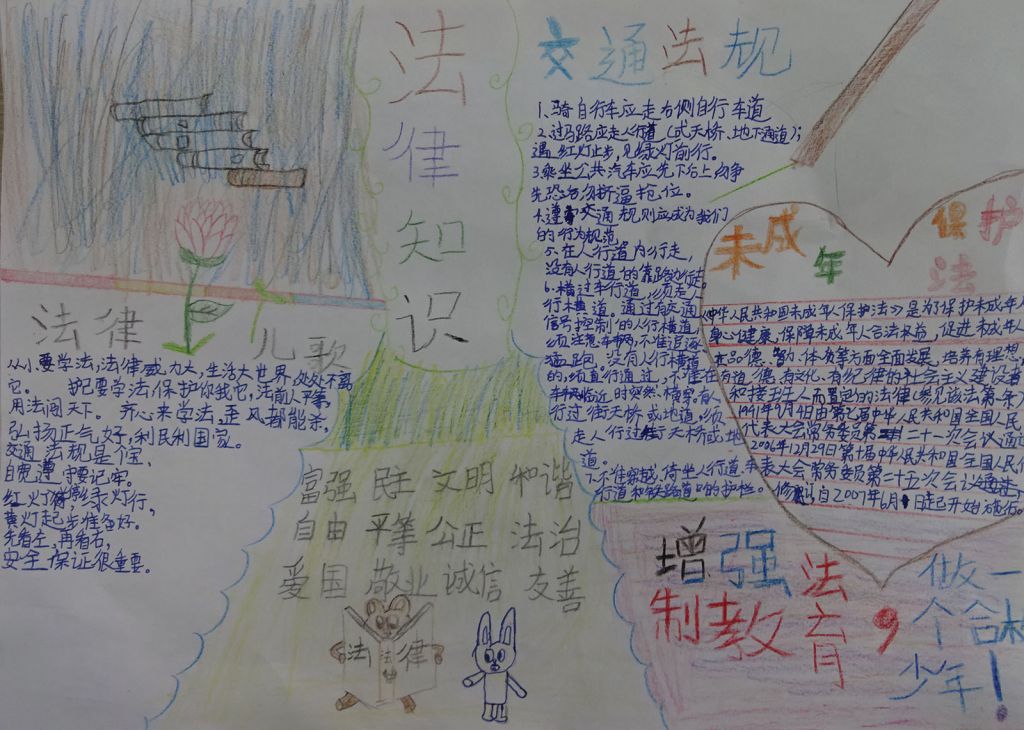 法律知识
交通法规
1、骑自行车应走右侧自行车道
2、过马路应走人行道(或天桥、地下通道);
遇红灯止步,见绿灯前行。
3.乘坐公共汽车应先下后上勿争
先恐后勿挤逼抢位。
4.遵守交通规则应成为我们
的行为规范
5.在人行道内行走,
没有人行道的靠路边行走
6.横过车行道,须走人
行横道。通过有交通
信号控制的人行横道,
须注意车辆,不准追逐
猛跑。没有人行横道
的,须直行通过,不准在
车辆临近时突然横穿。有人
行过街天桥或地道,须
走人行过街天桥或地
道。
7.不准穿越、倚坐人行道、车
行道和铁路道口的护栏。
未成年保护法
《中华人民共和国未成年人保护法》是为了保护未成年人
身心健康,保障未成年人合法权益,促进未成年人
在品德、智力、体质等方面全面发展,培养有理想、
有道德、有文化、有纪律的社会主义建设者
和接班人而制定的法律(参见该法第一条)
1991年9月4日由第七届中华人民共和国全国人民
代表大会常务委员第二十一次会议通过
2006年12月29日第十届中华人民共和国全国人民代
表大会常务委员第二十五次会议通过,
修订自2007年6月1日起已开始施行。
法律儿歌
从小要学法,法律威力大,生活大世界,处处不离
它。 护己要学法保护你我它,法前人平等,
用法闯天下。 开心来学法,歪风都能杀,
弘扬正气好,利民利国家。
交通法规是个宝,
自觉遵守要记牢。
红灯停,绿灯行,
黄灯起步准备好。
先看左,再看右,
安全保证很重要。
富强 民主 文明 和谐
自由 平等 公正 法治
爱国 敬业 诚信 友善
法律
法律
增强法
制教育,
做一
个合格
少年!